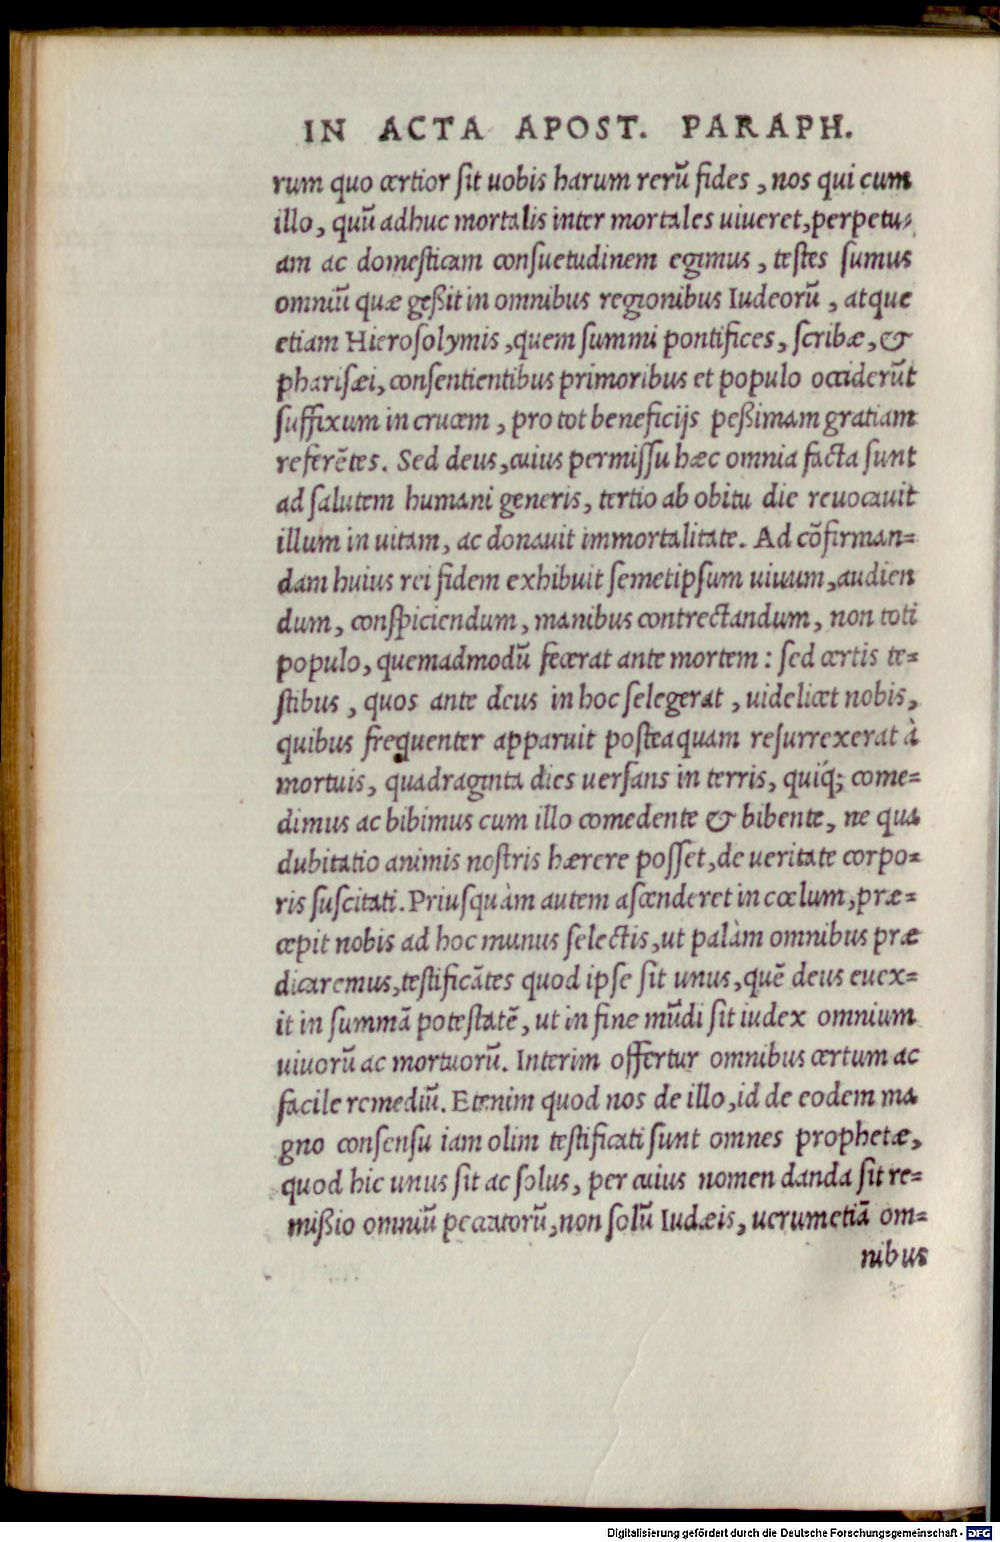 IN ACTA APOST. PARAPH.
rum quo certior ſit uobis harum rerū fides, nos qui cum
illo, quū adhuc mortalis inter mortales uiueret, perpetu-
am ac domeſticam conſuetudinem egimus, teſtes ſumus
omniū quæ geßit in omnibus regionibus Iudeorū, atque
etiam Hieroſolymis, quem ſummi pontifices, ſcribæ, &
phariſæi, conſentientibus primoribus et populo occiderūt
ſuffixum in crucem, pro tot beneficijs peßimam gratiam
referētes. Sed deus, cuius permiſſu hæc omnia facta ſunt
ad ſalutem humani generis, tertio ab obitu die reuocauit
illum in uitam, ac donauit immortalitate. Ad cōfirman=
dam huius rei fidem exhibuit ſemetipſum uiuum, audien
dum, conſpiciendum, manibus contrectandum, non toti
populo, quemadmodū fecerat ante mortem: ſed certis te=
ſtibus, quos ante deus in hoc ſelegerat, uidelicet nobis,
quibus frequenter apparuit poſteaquam reſurrexerat à
mortuis, quadraginta dies uerſans in terris, quiq́; come=
dimus ac bibimus cum illo comedente & bibente, ne qua
dubitatio animis noſtris hærere poſſet, de ueritate corpo=
ris ſuſcitati. Priuſquàm autem aſcenderet in cœlum, præ=
cepit nobis ad hoc munus ſelectis, ut palàm omnibus præ
dicaremus, teſtificātes quod ipſe ſit unus, quē deus euex=
it in ſummā poteſtatē, ut in fine mūdi ſit iudex omnium
uiuorū ac mortuorū. Interim offertur omnibus certum ac
facile remediū. Etenim quod nos de illo, id de eodem ma
gno conſenſu iam olim teſtificati ſunt omnes prophetæ,
quod hic unus ſit ac ſolus, per cuius nomen danda ſit re=
mißio omniū peccatorū, non ſolū Iudæis, uerumetiā om=
nibus
Digitalisierung gefördert durch die Deutsche Forschungsgemeinschaft - DFG